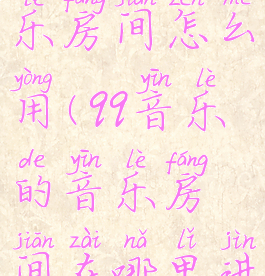 lè fáng jiān zěn me
乐房间怎么
yòng yīn lè
用(99音乐
de yīn lè fáng
的音乐房
jiān zài nǎ lǐ jìn
间在哪里进